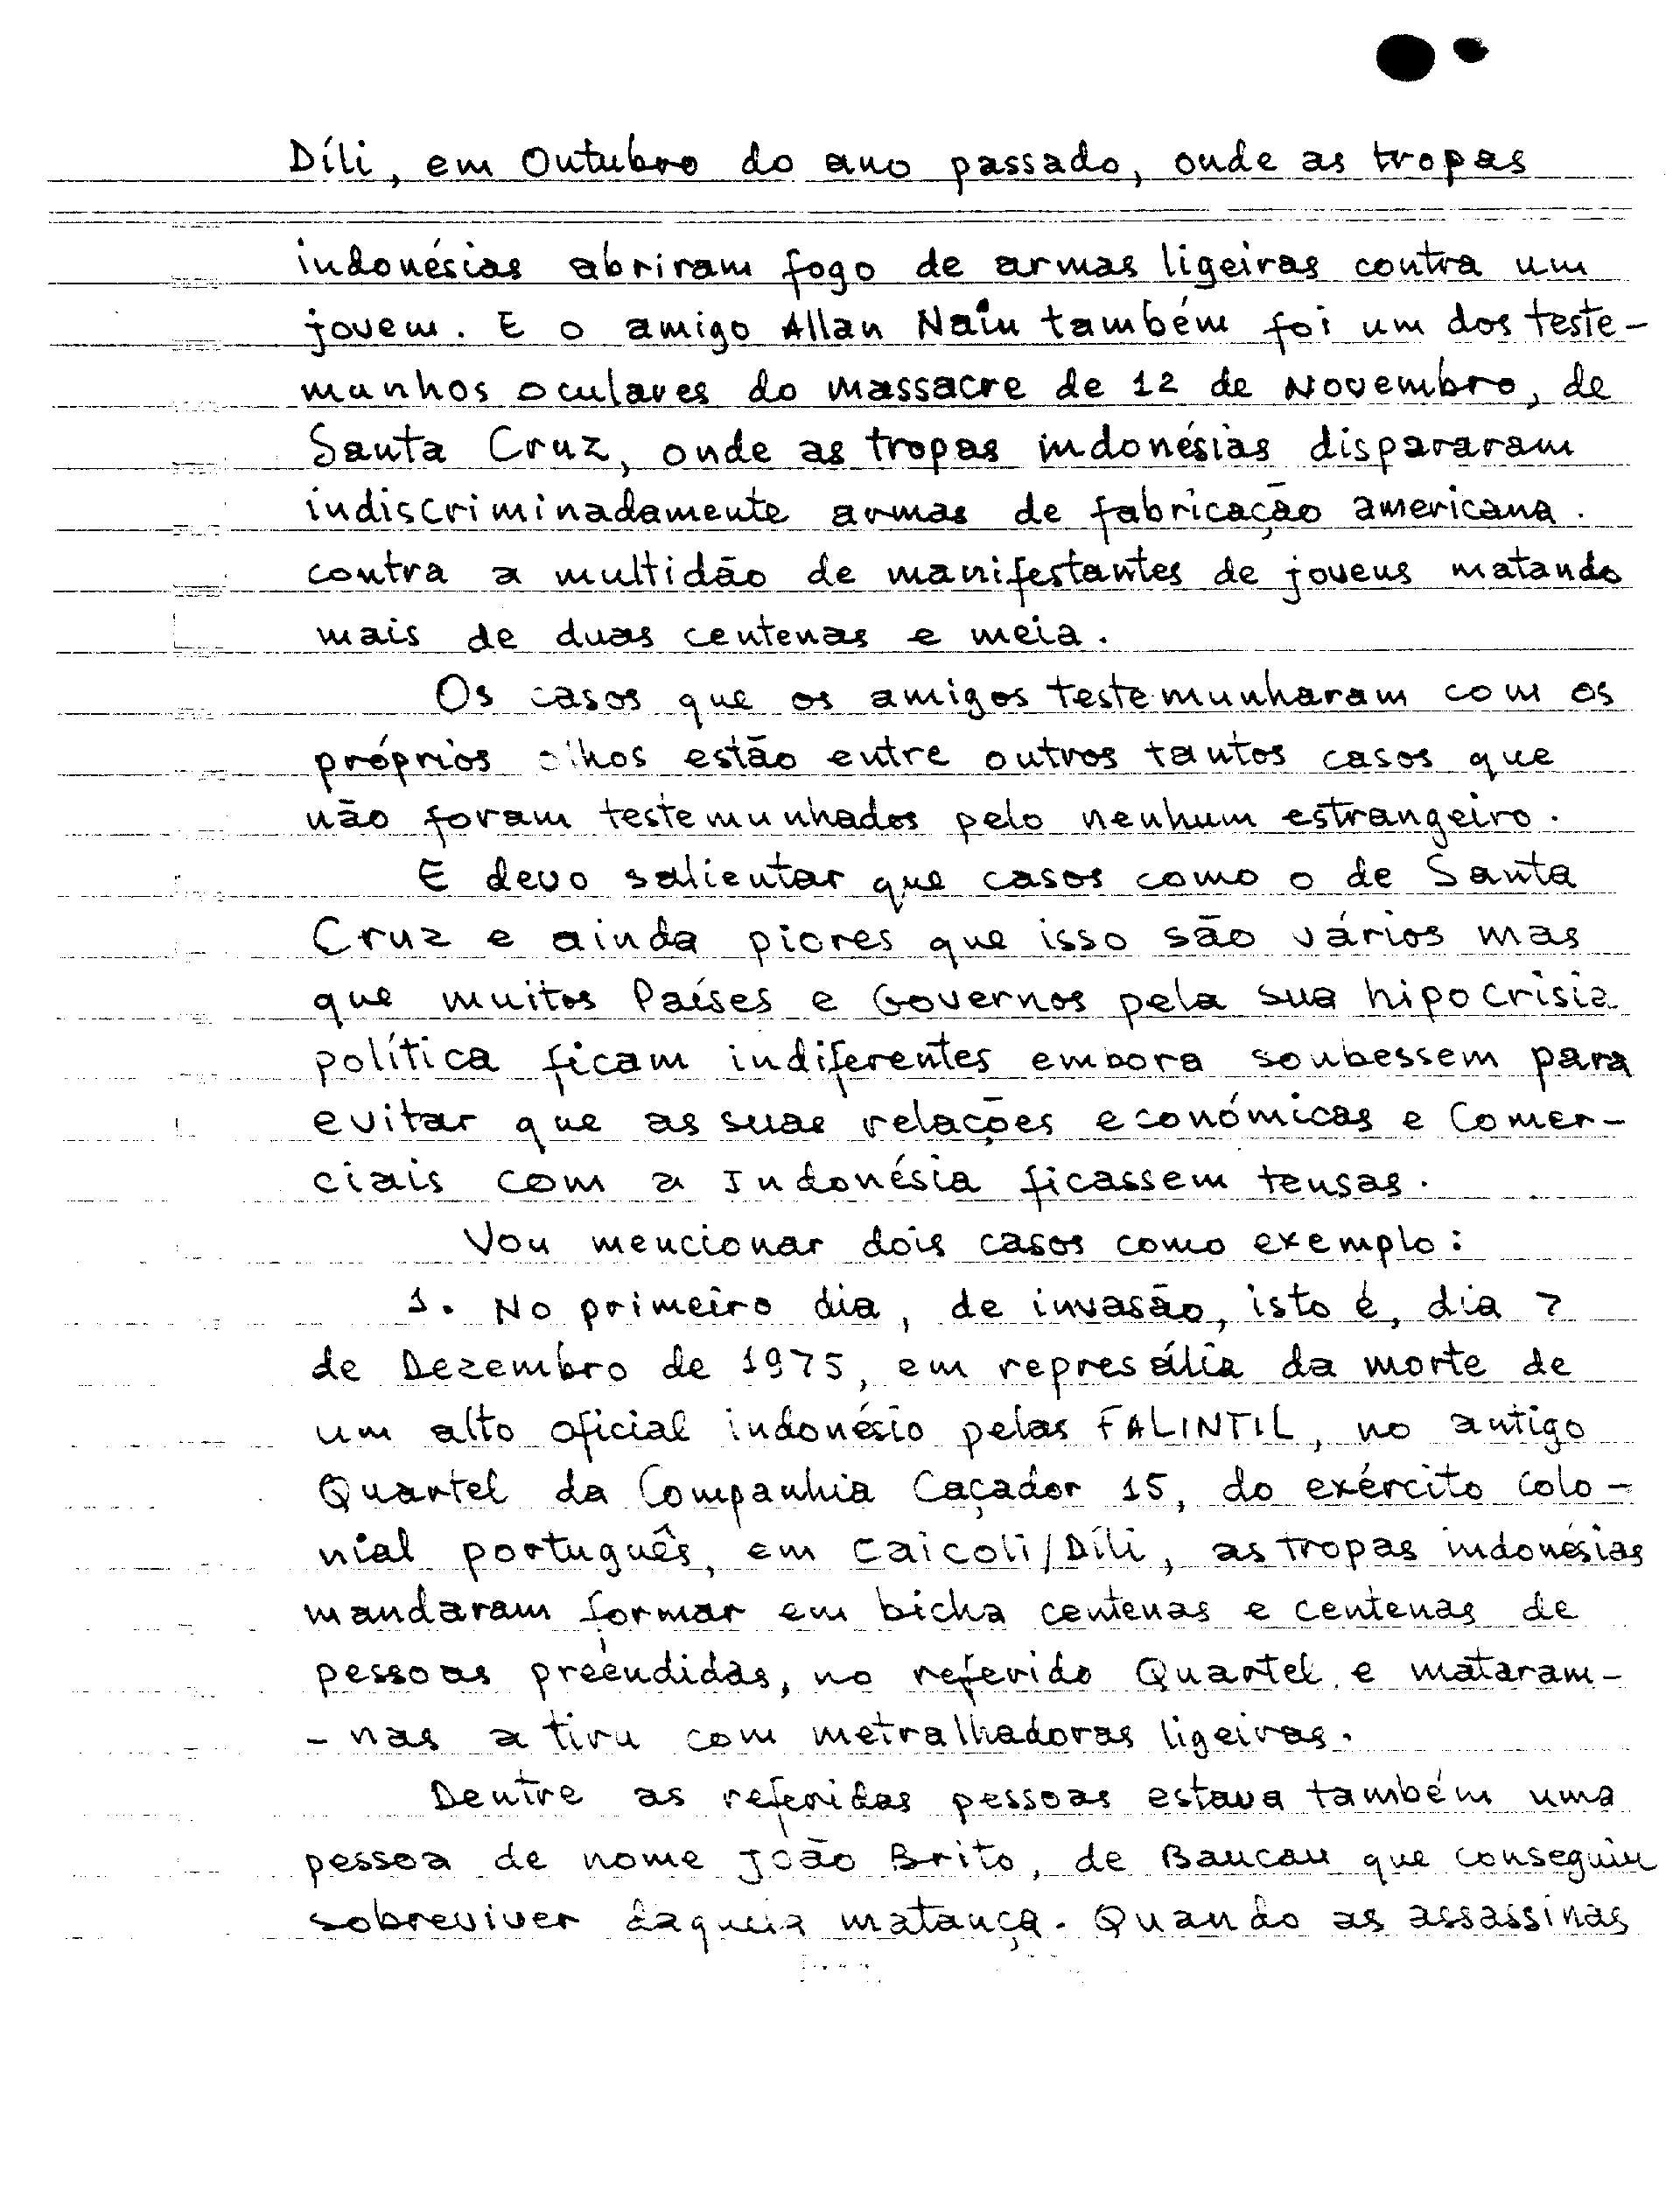 Díli, em Outubro do ano passado, onde as tropas
indonésias abriram fogo de armas ligeiras contra um
jovem. E o amigo Allan Nain também foi um dos teste-
munhos oculares do massacre de 12 de Novembro, de
Santa Cruz, onde as tropas indonésias dispararam
indiscriminadamente armas de fabricação americana.
contra a multidão de manifestantes de jovens matando
mais de duas centenas e meia.
Os casos que os amigos testemunharam com os
próprios olhos estão entre outros tantos casos que
não foram testemunhados pelo nenhum estrangeiro.
E devo salientar que casos como o de Santa
Cruz e ainda piores que isso são vários mas
que muitos Países e Governos pela sua hipocrisia
política ficam indiferentes embora soubessem para
evitar que as suas relações económicas e Comer-
ciais com a Indonésia ficassem tensas.
Vou mencionar dois casos como exemplo:
1. No primeiro dia, de invasão, isto é, dia 7
de Dezembro de 1975, em represália da morte de
um alto oficial indonésio pelas FALINTIL, no antigo
Quartel da Companhia Caçador 15, do exército Colo-
nial português, em Caicoli/Díli, as tropas indonésias
mandaram formar em bicha centenas e centenas de
pessoas preéndidas, no referido Quartel e mataram-
-nas a tiru com metralhadoras ligeiras.
Dentre as referidas pessoas estava também uma
pessoa de nome João Brito, de Baucau que conseguiu
sobreviver daquela matança. Quando as assassinas